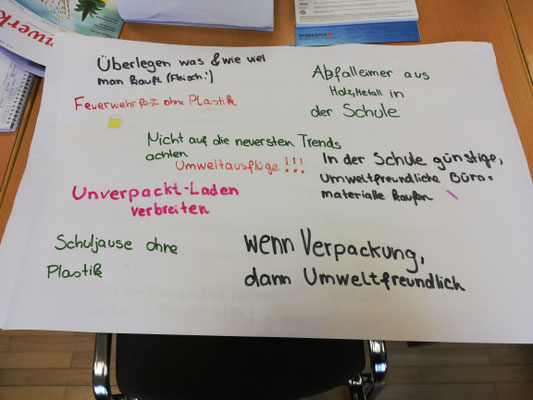 werk
Überlegen was & wie viel
man kauft (Fleisch!)
Abfalleimer aus
Holz/Metall in
der Schule
Feuerwehr ohne Plastik
Nicht auf die neuersten Trends
achten
Umweltausflüge!!!
In der Schule günstige,
Umweltfreundliche Büro-
materialie kaufen
Unverpackt-Laden
verbreiten
Schuljause ohne
Plastik
wenn Verpackung,
dann Umweltfreundlich